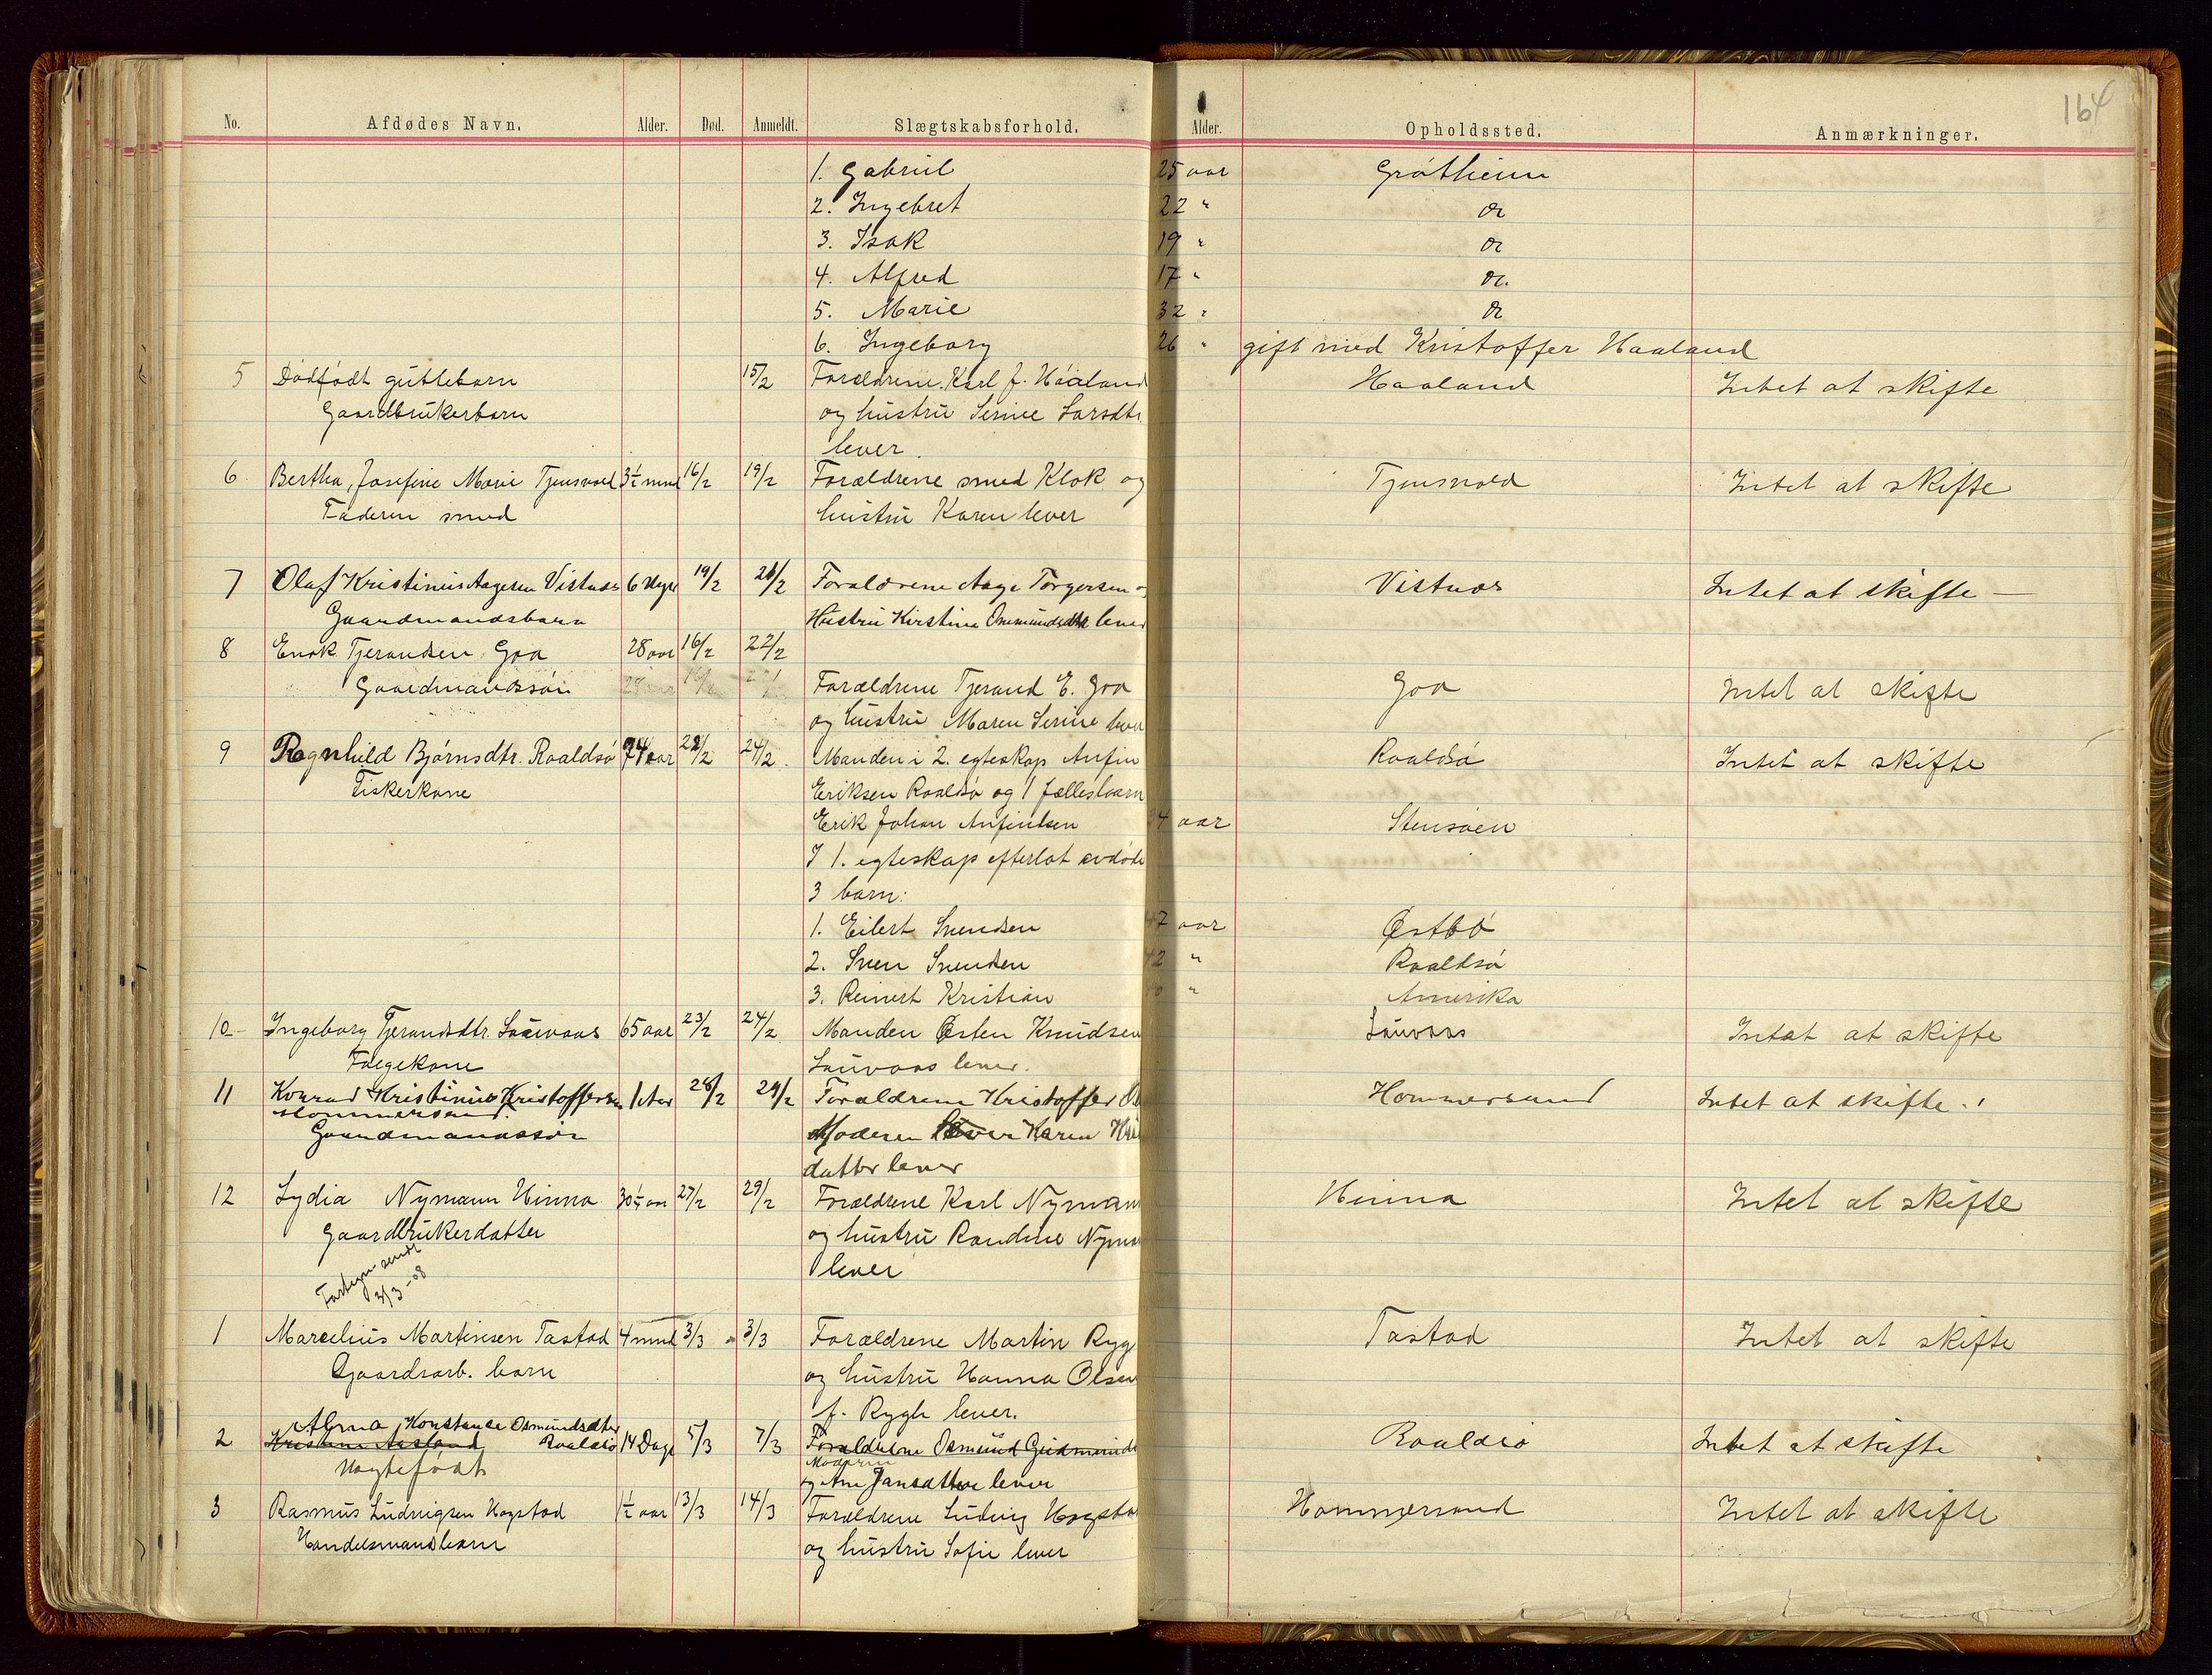 164
No. Afdødes Navn. Alder. Død. Anmeldt. Slægtskabsforhold. Alder. Opholdssted. Anmærkninger.
1. Gabriel 25 aar Grøtheim
2. Ingebret 22 " do
3. Isak 19 " do
4. Alfred 17 " do.
5. Marie 32 " do
6. Ingeborg 26 " gift med Kristoffer Haaland
5 Dødfødt guttebarn 15/2 Forældrene Karl J. Haaland Haaland Intet at skifte
Gaardbrukerbarn og hustru Serine Larsdtr.
lever.
6 Bertha, Josefine Marie Tjensvold 3½ mnd 16/2 19/2 Forældrene smed Klok og Tjensvold Intet at skifte
Faderen smed hustru Karen lever
7 Olaf Kristinius Aagesen Vistnes 6 Uger 19/2 21/2 Forældrene Aage Torgersen Vistnes Intet at skifte —
Gaardmandsbarn Hustru Kirstine Osmundsdtr lever
8 Enok Tjerandsen Goa 28 aar 16/2 22/2
Gaardmandssøn Forældrene Tjerand E. Goa Goa Intet at skifte
og hustru Maren Serine lever
9 Ragnhild Bjørnsdtr. Roaldsø 74 aar 22/2 24/2. Manden i 2. egteskap Anfin Roaldsø Intet at skifte
Fiskerkone Eriksen Roaldsø og 1 fællesbarn
Erik Johan Anfindsen 34 aar Stensøen
I 1. egteskap efterlot avdøde
3 barn:
1. Eilert Svendsen 47 aar Østbø
2. Sven Svendsen 42 " Roaldsø
3. Reinert Kristian 40 " Amerika
10 Ingeborg Tjerandsdtr. Sauvaas 65 aar 23/2 24/2 Manden Østen Knudsen Sauvaas Intet at skifte
Følgekone Sauvaas lever.
11 Konrad Kristinius Kristoffersen 1 Aar 26/2 29/2 Forældrene Kristoffer Hommersand Intet at skifte.
Hommersand.
Gaardmandssøn Moderen Karen
datter lever
12 Lydia Nymann Hinna 30½ aar 27/2 29/2 Forældrene Karl Nymann Hinna Intet at skifte
Gaardbrukerdatter og hustru Randine
lever
3/3-08
1 Marselius Martinsen Tastad 4 mnd 3/3 3/3 Forældrene Martin Rygh Tastad Intet at skifte
Gaardsarb. barn og hustru Hanna Olsen
f. Rygh lever.
Alma Konstance Osmundsdtr
2 Roaldsø 14 Dage 5/3 7/3 Forældrene Osmund Gudmunds Roaldsø Intet at skifte
Uægtefødt Moderen
og Ane Jansdatter lever
3 Rasmus Ludvigsen Hogstad 1½ aar 13/3 14/3 Forældrene Ludvig Hogstad Hommersand Intet at skifte
Handelsmandsbarn og hustru Sofie lever